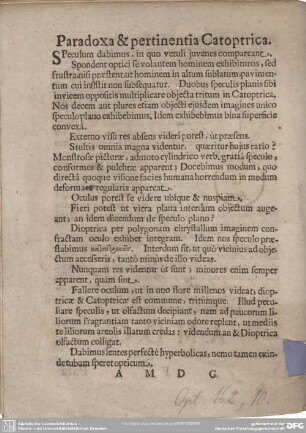 Paradoxa & pertinentia Catoptrica.
Speculum dabimus, in quo vetuli juvenes compareant.
Spondent optici se volantem hominem exhibituros, sed
frustra: nisi præstent ut hominem in altum sublatum pavimen-
tum cui institit non subsequatur. Duobus speculis planis sibi
invicem oppositis multiplicare objecta tritum in Catoptrica.
Nos decem aut plures etiam objecti ejusdem imagines unico
speculo plano exhibebimus, Idem exhibebimus bina superficie
convexâ.
Externo visu res absens videri potest, ut præsens.
Stultis omnia magna videntur. quæritur hujus ratio?
Monstrosæ picturæ, admoto cylindrico verb. gratiâ speculo,
conformes & pulchræ apparent; Docebimus modum, quo
directâ quoque visione facies humana horrendum in modum
deformata regularis appareat.
Oculus potest se videre ubique & nuspiam.
Fieri potest ut vitra plana interdum objectum auge-
ant; an idem dicendum de speculo plano?
Dioptrica per polygonam chrystallum imaginem con-
fractam oculo exhibet integram. Idem nos speculo præ-
stabimus Interdum fit, ut quò vicinius ad obje-
ctum accesseris, tantò minùs de illo videas.
Nunquam res videntur ut sunt; minores enim semper
apparent, quàm sint.
Fallere oculum, ut in uno flore millenos videat; diop-
tricæ & Catoptricæ est commune, tritumque. Illud pecu-
liare speculis, ut olfactum decipiant; nam ad paucorum li-
liorum fragrantiam tanto viciniam odore replent, ut mediis
te liliorum areolis illatum credas: videndum an & Dioptrica
olfactum colligat.
Dabimus lentes perfectè hyperbolicas, nemo tamen exin-
de tubum speret opticum.
A M D G